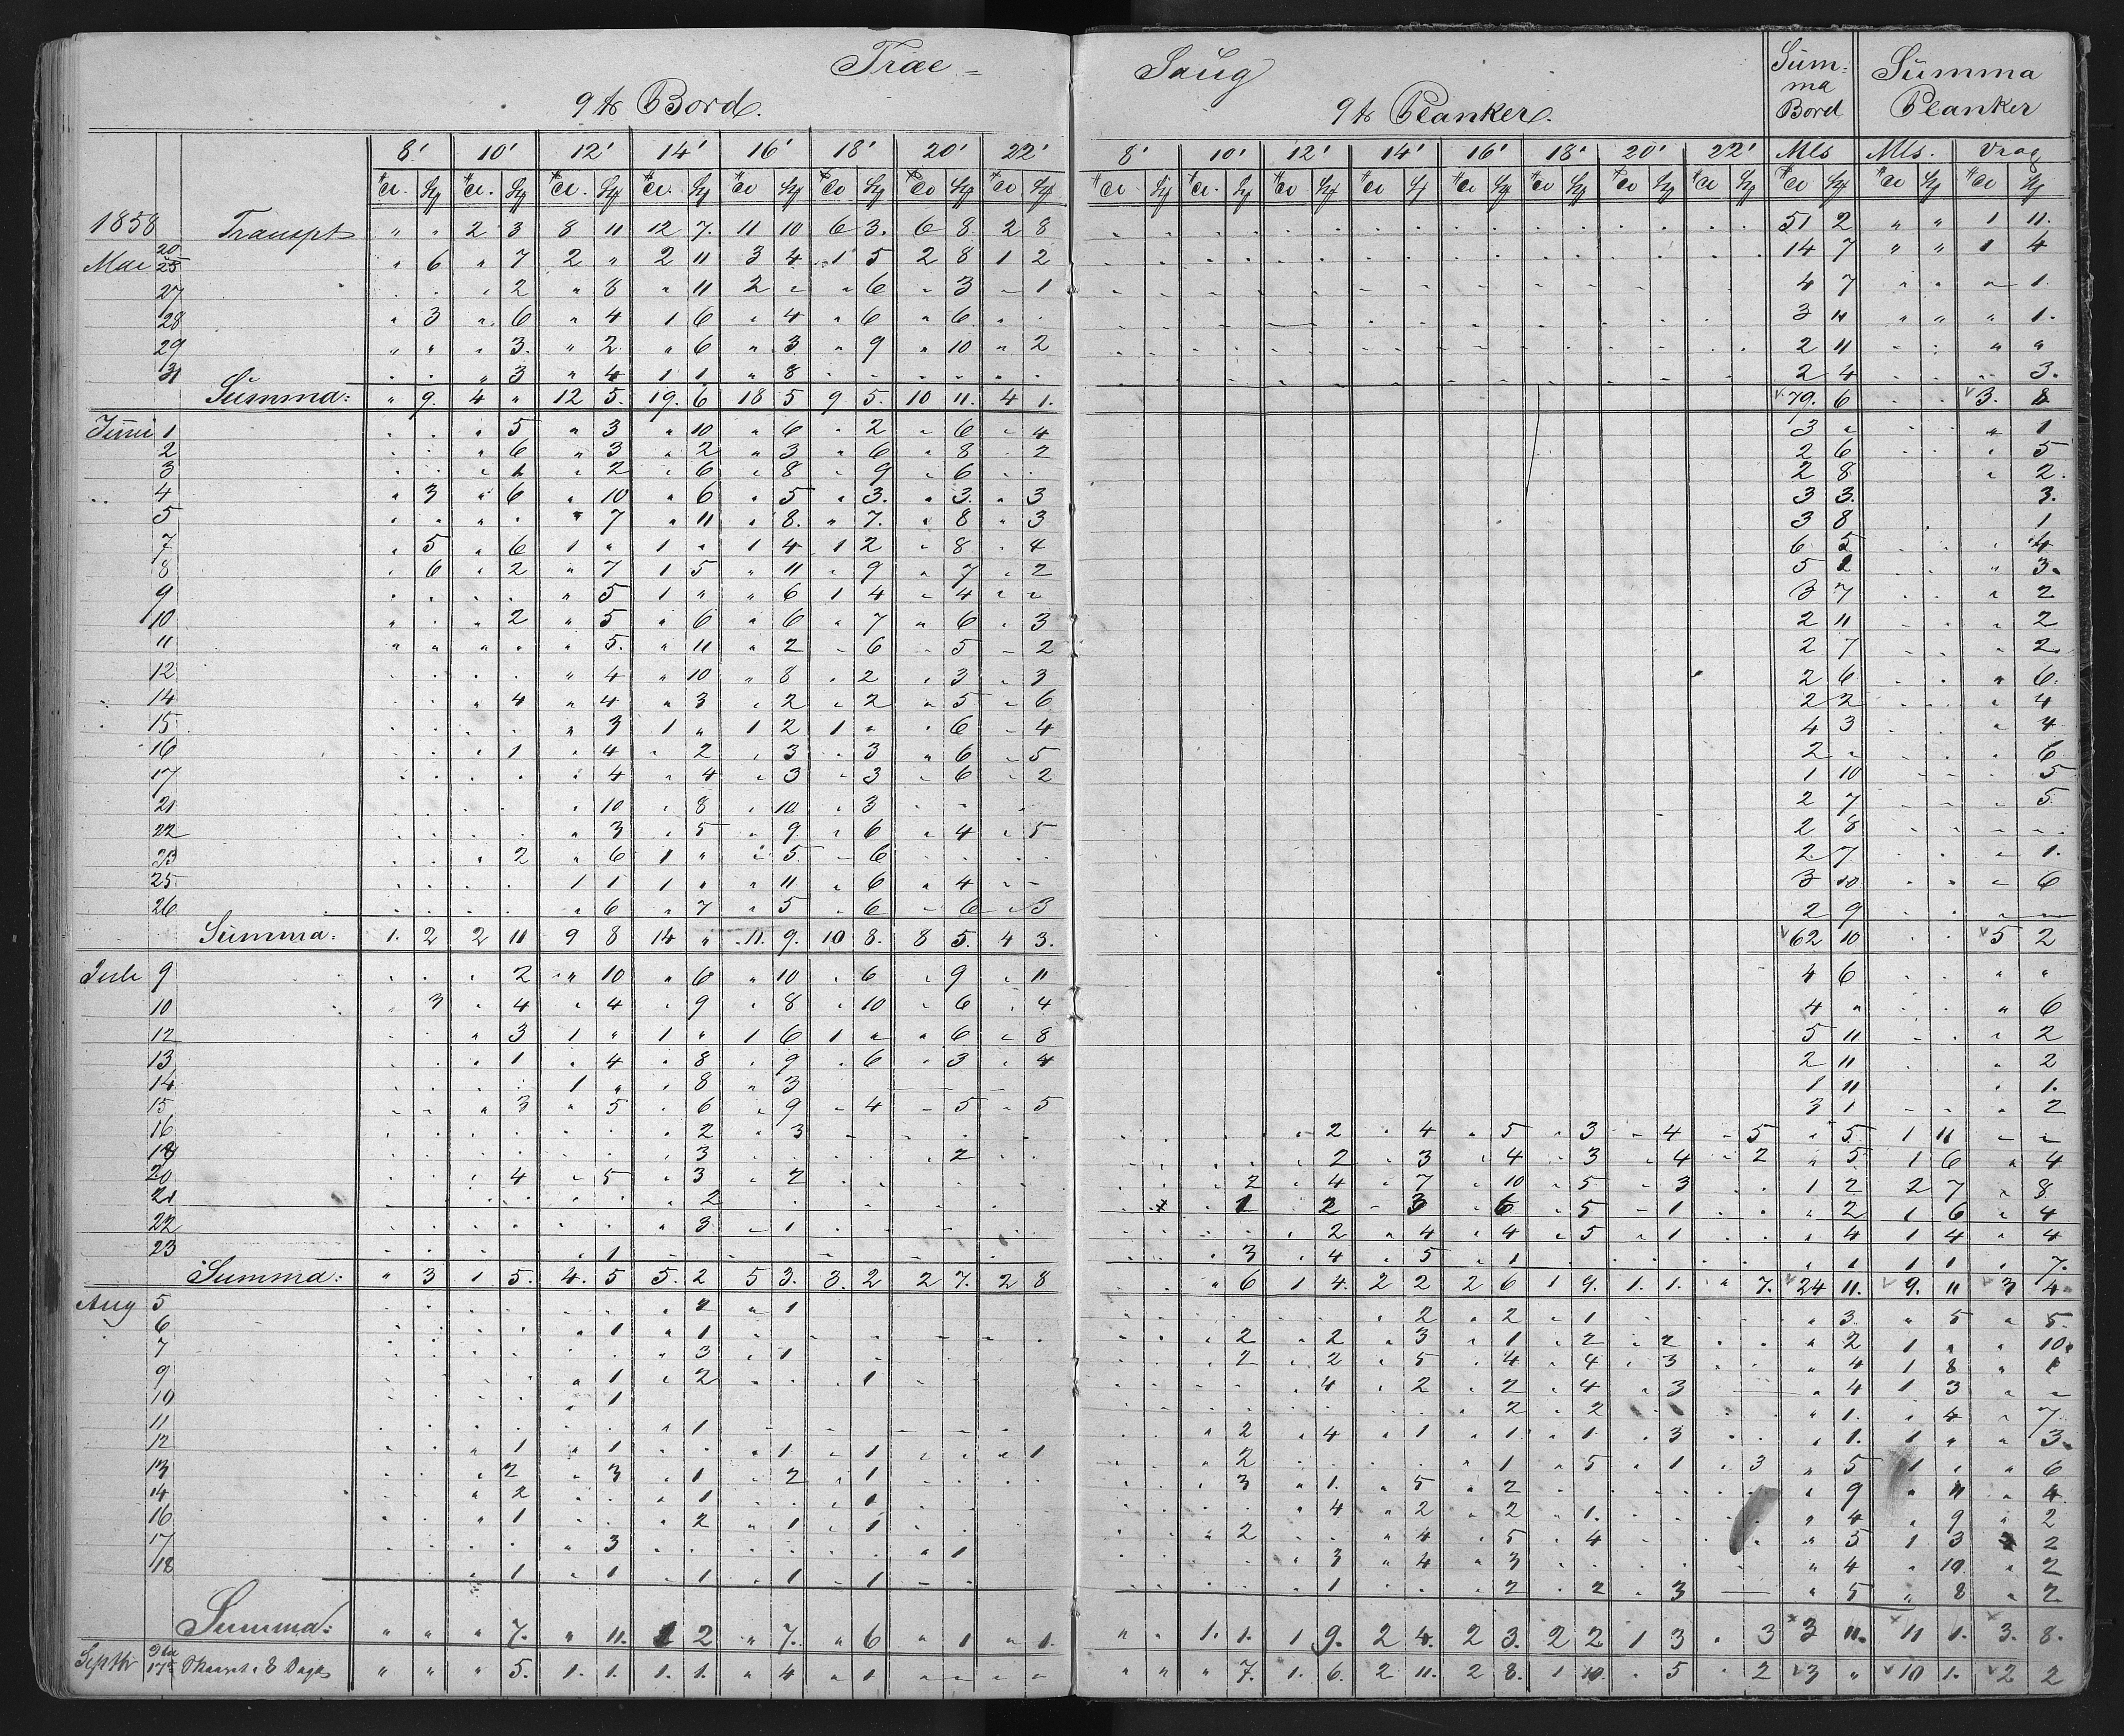 Træ = 
9 t. Bord.
8' 10' 12' 14' 16' 18' 20' 22'
1858 Transpt " " 2 3 8 11 12 7. 11 10 6 3. 6 8. 2 8
Mai 20/25 " 6 " 7 2 " 2 11 3 4 1 5 2 8 1 2
27 . . " 2 " 8 " 11 2 " " 6 " 3 " 1
28 " 3 " 6 " 4 1 6 " 4 " 6 " 6 . .
29 " " " 3. " 2 " 6 " 3 " 9 " 10 " 2
31 . . " 3 " 4 1 1 " 8 . . . . . .
Summa: " 9. 4 " 12 5. 19. 6 18 5 9 5. 10 11. 4 1.
Juni 1 . . " 5 " 3 " 10 " 6 " 2 " 6 " 4
2 . . " 6 " 3 " 2 " 3 " 6 " 8 " 2
3 . . " 1 " 2 " 6 " 8 " 9 " 6 . .
4 " 3 " 6 " 10 " 6 " 5 " 3. " 3. " 3
5 . . . . " 7 " 11 " 8. " 7. " 8 " 3
7 " 5 " 6 1 " 1 " 1 4 1 2 " 8 " 4
8 " 6 " 2 " 7 1 5 " 11 " 9 " 7 " 2
9 . . . . " 5 1 " " 6 1 4 " 4 " "
10 " . " 2 " 5 " 6 " 6 " 7 " 6 " 3
11 " " " . " 5. " 11 " 2 " 6 " 5 " 2
12 . . . . " 4 " 10 " 8 " 2 " 3 " 3
14 . . " 4 " 4 " 3 " 2 " 2 " 5 " 6
15 . . . . " 3 1 " 1 2 1 " " 6 " 4
16 . . " 1 " 4 " 2 " 3 " 3 " 6 " 5
17 . . . . " 4 " 4 " 3 " 3 " 6 " 2
21 . . . . " 10 " 8 " 10 " 3 . . . .
22 . . . . " 3 " 5 " 9. " 6 " 4 " 5
23 . . " 2 " 6 1 " " 5 " 6 . . . .
25 . . . . 1 1 1 " " 11 " 6 " 4 " "
26 . . . . " 6 " 7 " 5 " 6 " 6 " 3
Summa: 1. 2 2 11 9 8 14 " 11. 9. 10 8. 8 5. 4 3.
Juli 9 . . " 2 " 10 " 6 " 10 " 6 " 9 " 11
10 " 3 " 4 " 4 " 9 " 8 " 10 " 6 " 4
12 . . " 3 1 " 1 " 1 6 1 " " 6 " 8
13 . . " 1 " 4 " 8 " 9 " 6 " 3 " 4
14 . . . . 1 " " 8 " 3
15 . . " 3 " 5 " 6 " 9 " 4 " 5 " 5
16 . . . . . . " 2 " 3 . . . . . .
19 . . . . . . " 3 . . . . " 2 . .
20 . . " 4 " 5 " 3 " 2 . . . . . .
21 . . . . . . " 2 . . . . . . . .
22 . . . . . . " 3 " 1 . . . . . .
23 . . . . " 1 . . . . . . . . . .
Summa: " 3 1 5. 4. 5 5. 2 5 3. 3. 2 2 7. 2 8
Aug 5 . . . . . . " 2 " 1
6 . . . . " 1 " 1 . . . . . . . .
7 . . . . . . " 3 " 1
9 . . . . " 1 " 2 . . " 1
10 . . . . " 1
11 . . . . . . " 1 . . . . . . . .
12 . . " 1 " 1 . . " 1 " 1 . . " 1
13 . . " 2 " 3 " 1 " 2 " 1 . . . .
14 . . " 2 . . " 1 . . " 1
16 . . " 1 . . " 2 " 1 " 1
17 . . . . " 3 . . . . . . " 1
18 . . " 1 " 1 " 1 " 1 " 1
Summa: " " " 7. " 11. 1 2 " 7. " 6 " 1 " 1.
Septbr 9de 17de 8 Dage " " " 5. 1. 1. 1. 1. " 4 " 1 " " " "
Saug
9 t. Planker.
Summa Bord
Summa Planker
8' 10' 12' 14' 16' 18' 20' 22' Mls Mls. Vrag
51 2 " " 1 11.
14 7 " " 1 4
4 7 " " " 1.
3 11 " " " 1.
2 11 . . " "
2 4 . . . 3.
79. 6 . . 3. 8
3 " . . " 1
2 6 . . " 5
2 8 " 2.
3 3. 3.
3 8 1
6 5 . . " 4
5 1 " 3.
3 7 . . " 2
2 11 . . " 2
2 7 . . " 2.
2 6 . . " 6.
2 2 . . " 4
4 3 . . " 4
2 " . . . 6
1 10 . . . 5
2 7 . . . 5
2 8 . . . .
2. 7. . . " 1.
3 10 . . " 6
2 9 . . " "
62 10 . . 5 2
4 6 . . " "
4 " . . " 6
5 11 . . " 2
2 11 " 2
1 11 " 1.
3 1 . . " 2
" 2 " 4 " 5 " 3 " 4 " 5 " 5 1 11 " "
" 2 " 3 " 4 " 3 " 4 " 2 " 5 1 6 " 4
" 2 " 4 " 7 " 10 " 5 " 3 . . 1 2 2 7 " 8
" 1 " 2 " 3 " 6 " 5 " 1 . . " 2 1 6 " 4
" 2 " 4 " 4 " 5 " 1 . . " 4 1 4 " 4
" 3 " 4 " 5 " 1 . . . . . . " 1 1 1 " 7.
" 6 1 4. 2 2 2 6 1 9. 1. 1. " 7. 24 11. 9. 11 3 4
" 2 " 2 " 1 " 3. " 5 " 5.
" 2 " 2 " 3 " 1 " 2 " 2 . . " 2 1 " " 10.
" 2 " 2 " 5 " 4 " 4 " 3 . . " 4 1 8 " 1
" 4 " 2 " 2 " 4 " 3 " 4 1 3 " "
" 2 " 2 " 1. " 4 " 7
" 2 " 4 " 1 " 1 " 1. " 3 " 1. 1 " " 3.
" 2 . . . . " 1 " 5 " 1 " 3 " 5 1 " " 6
" 3 " 1. " 5 " 2 . . . . . . " 9 " 11 " 4
" 4 " 2 " 2 " 1. . . . . " 4 " 9 " 2
" 2 . . " 4 " 5 " 4 . . . . " 5 1 3 " 2
" 3 " 4 " 3 . . . . . . " 4 " 10. " 2
" 1 . . " 2 " 2 " 3 " 5 " 8 " 2.
" " 1. 1. 1 9. 2 4. 2 3. 2 2 1 3 " 3 3 11. 11 1. 3. 8.
" " " 7. 1. 6. 2 11. 2 8. 1 10. " 5 " 2 3 " 10 1. 2 2